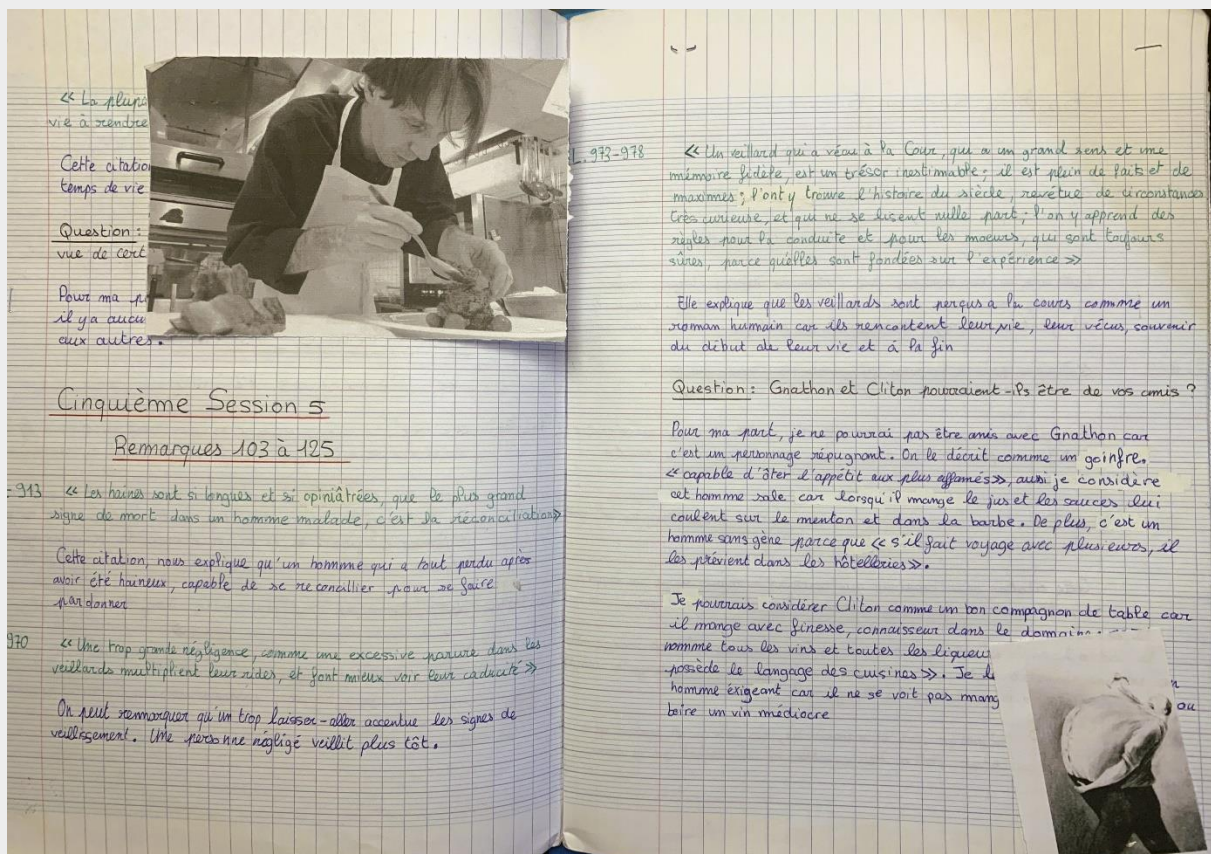 « La plupa
vie à rendre
Cette citation
temps de vie
Question :
vue de cert
Pour ma p
il ya aucu
aux autres.
Cinquième Session 5
Remarques 103 à 125
913 « Les haines sont si longues et si opiniâtrées, que le plus grand
signe de mort dans un homme malade, c'est la réconciliation»
Cette citation, nous explique qu'un homme qui a tout perdu après
avoir été haineux, capable de se reconcillier pour se faire
pardonner
970 « Une trop grande négligence, comme une excessive parure dans les
veillards multiplient leur rides, et font mieux voir leur caducité »
On peut remmorquer qu'un trop laisser-aller accentue les signes de
veillissement. Une personne négligé veillit plus tôt.
L. 973-978 « Un veillard qui a vécu à la Cour, qui a un grand sens et une
mémoire fidèle, est un trésor inestimable ; il est plein de faits et de
maximes ; l'ont y trouve l'histoire du siècle, revêtue de circonstances
très curieuse, et qui ne se lisent nulle part ; l'on y apprend des
règles pour la conduite et pour les moeurs, qui sont toujours
sûres, parce qu'elles sont fondées sur l'expérience »
Elle explique que les veillards sont perçus a la cours comme un
roman humain car ils rencontent leur vie, leur vécus, souvenir
du début de leur vie et à la fin
Question : Gnathon et Cliton pourraient-ils être de vos amis ?
Pour ma part, je ne pourrai pas être amis avec Gnathon car
c'est un personnage répugnant. On le décrit comme un goinfre.
« capable d'ôter l'appétit aux plus affamés», aussi je considère
cet homme sale car lorsqu'il mange le jus et les sauces lui
coulent sur le menton et dans la barbe. De plus, c'est un
homme sans gène parce que « s'il fait voyage avec plusieurs, il
les prévient dans les hôtelleries».
Je pourrais considérer Cliton comme un bon compagnon de table car
il mange avec finesse, connaisseur dans le domaine
nomme tous les vins et toutes les liqueu
possède le langage des cuisines ». Je
homme éxigeant car il ne se voit pas mang ou
boire un vin médiocre